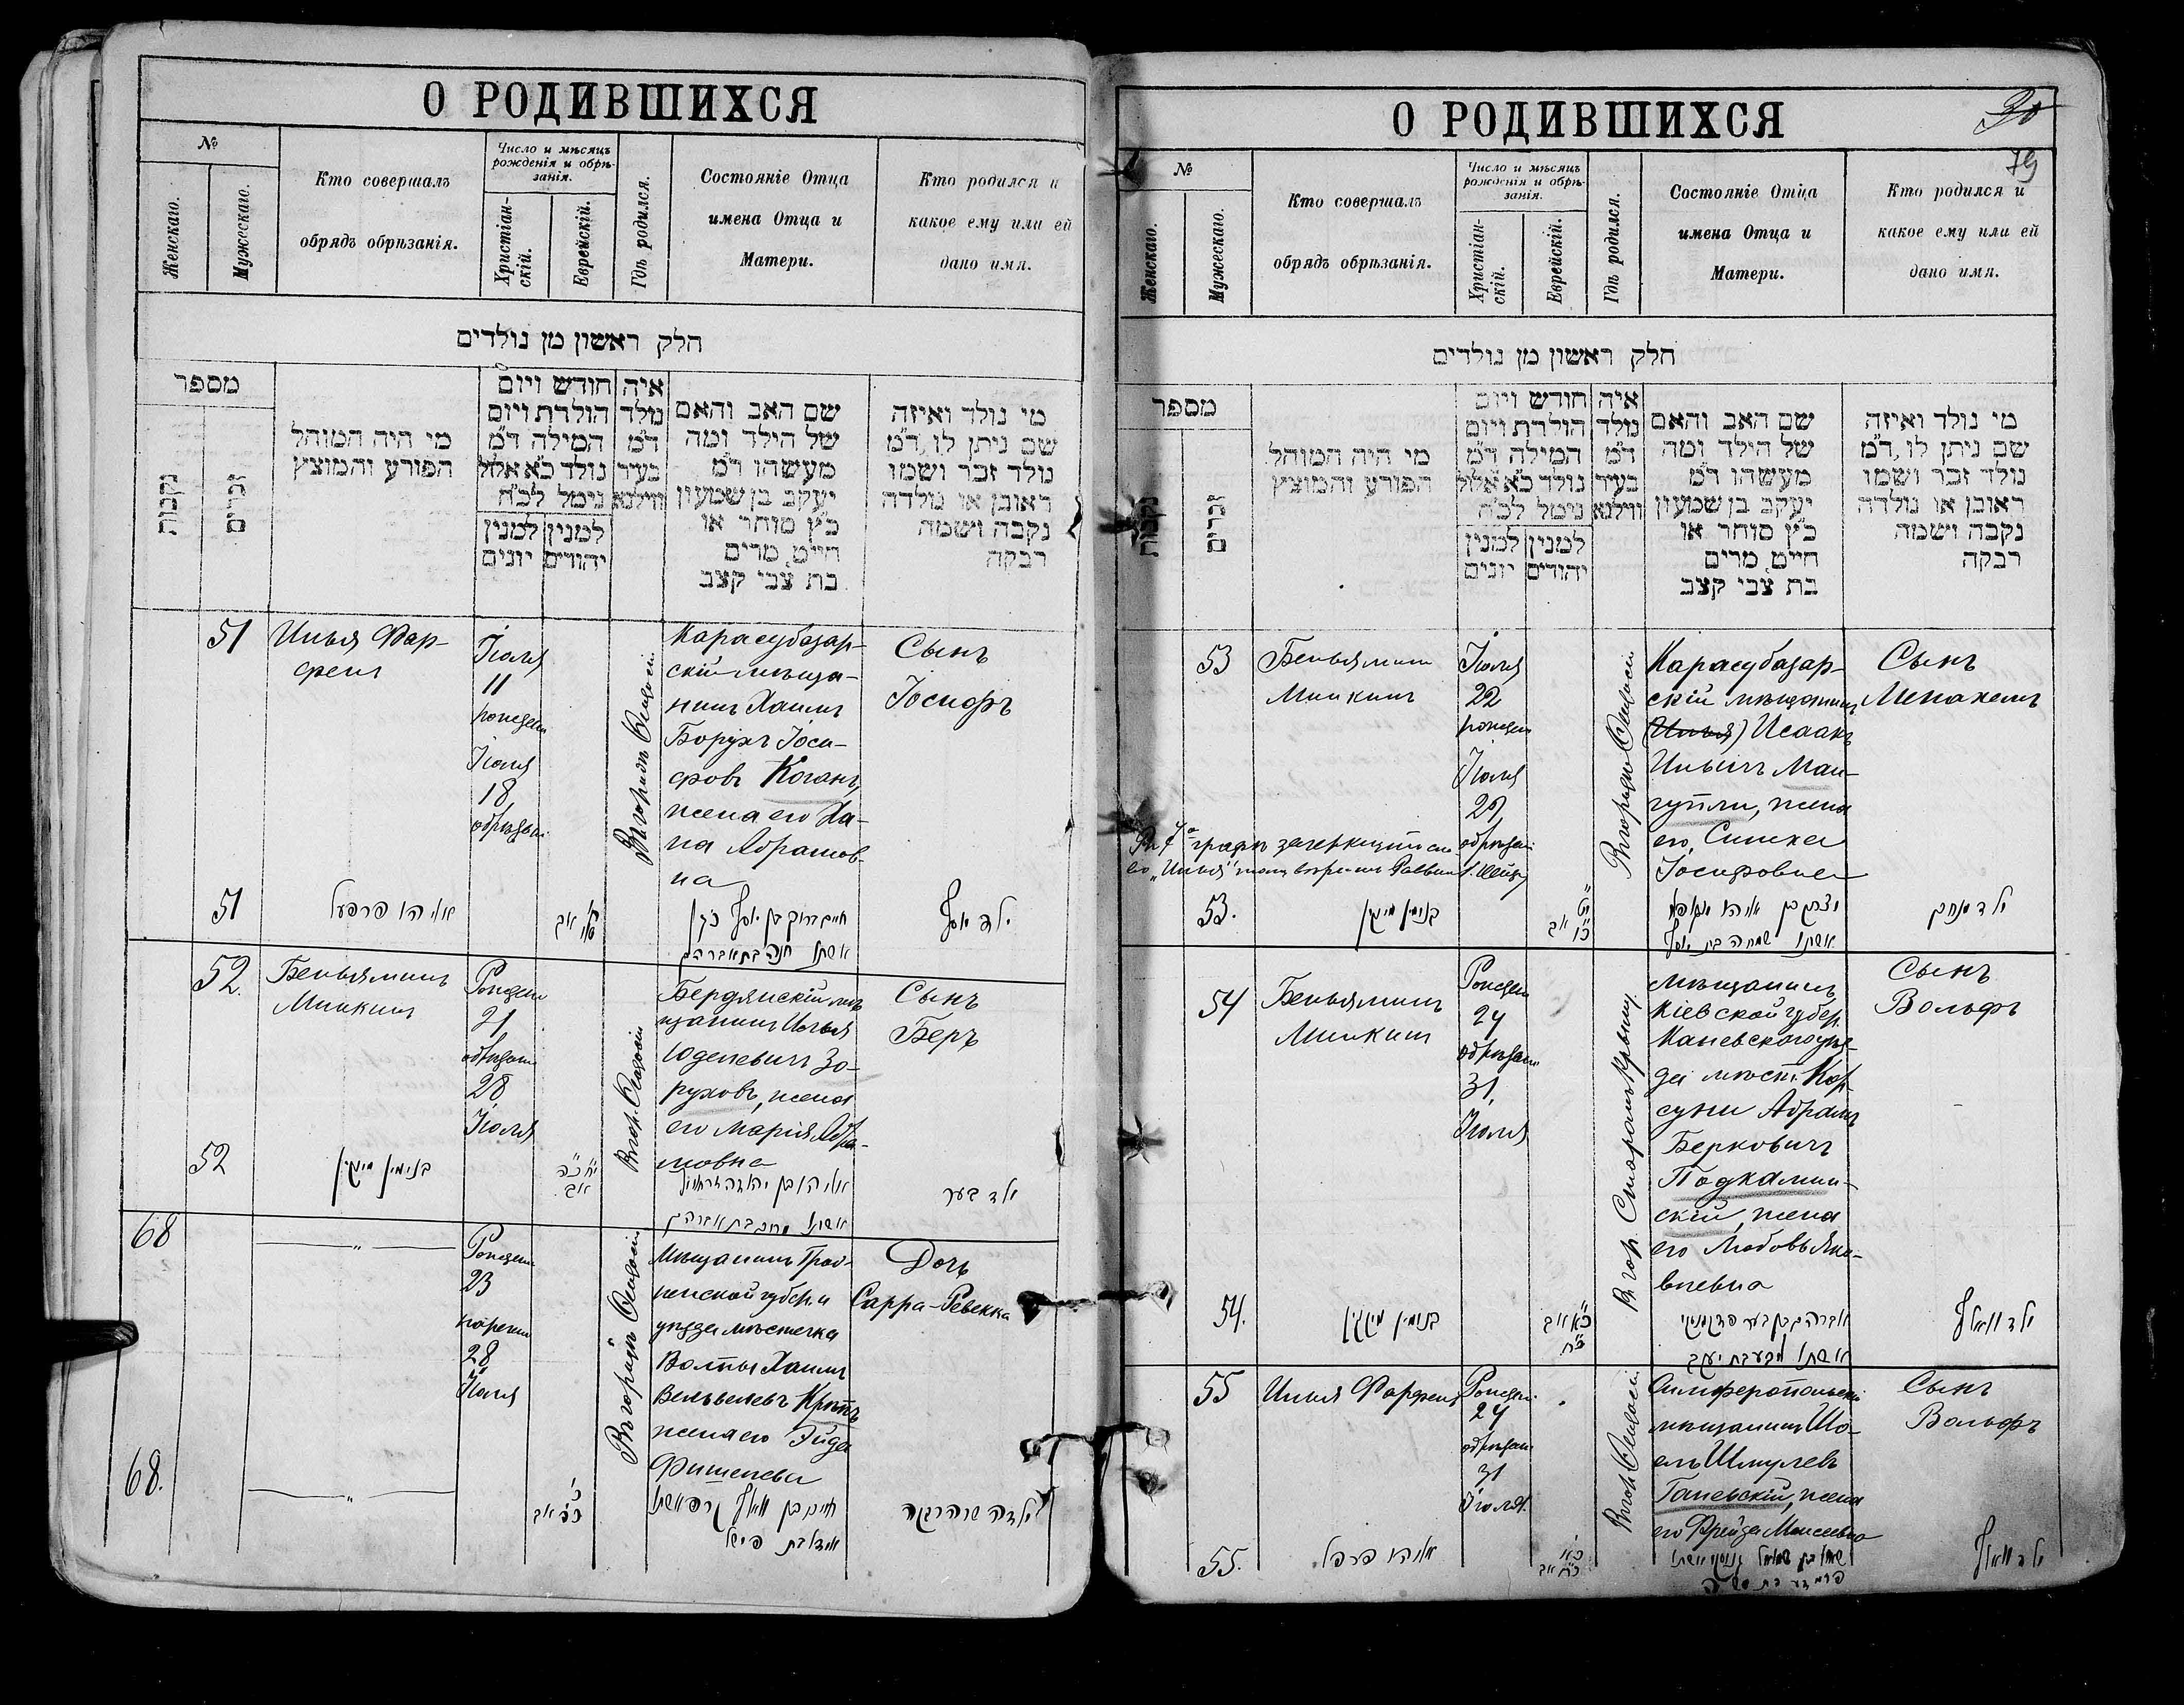 О РОДИВШИХСЯ
№
Женскаго.
Мужескаго.
Кто совершалъ
обрядъ обрѣзанія.
Число и мѣсяцъ
рожденія и обрѣ-
занія.
Христіан-
скій.
Еврейскій.
Гдѣ родился.
Состояніе Отца
имена Отца и
Матери.
Кто родился и
какое ему или ей
дано имя.
חלק ראשון מן נולדים
מספר
נקבות
זכרים
מי היה המוהל
הפורע והמוצץ
חודש ויום
הולדת ויום
המילה ד״מ
נולד כ״א אלול
נימל לכ״ח
למנין למנין
יהודים יונים
איה
נולד
ד״מ
בעיר
ווילנא
שם האב והאם
של הילד ומה
מעשהו ד״מ
יעקב בן שמעון
כ״ץ סוחר או
חייט, מרים
בת צבי קצב
מי נולד ואיזה
שם ניתן לו, ד״מ
נולד זכר ושמו
ראובן או נולדה
נקבה ושמה
רבקה
51
Илья Фар-
фель
Іюля
11
рожден
Іюля
18
обрѣзан
Въ городѣ Ѳеодосіи
Карасубазар-
скій мѣща-
нинъ Хаимъ
Борухъ Іоси-
фовъ Коганъ,
жена его Ха-
на Абрамов-
на
Сынъ
Іосифъ
51
אליהו פרפעל
אב
חיים ברוך בן יוסף כהן
אשתו חנה בת אברהם
ילד יוסף
52.
Беньяминъ
Минкинъ
Рожден
21,
обрѣзан
28
Іюля
Въ гор. Ѳеодосіи
Бердянскій мѣ-
щанинъ Илья
Юделевичъ Зо-
руховъ, жена
его Марія Абра-
мовна
Сынъ
Беръ
52
בנימין מינקין
אב
אליהו בן יהודה
ילד בער
68
Рожден
23
наречен
28
Іюля
Въ городѣ Ѳеодосіи
Мѣщанинъ Грод-
ненской губерн. и
уѣзда мѣстечка
Волпы Хаимъ
Вельвелевъ
жена его
Фишелева
Дочь
Сарра-Ревекка
68.
חיים בן וואלף
בת פישל
ילדה שרה רבקה
О РОДИВШИХСЯ
30
79
№
Женскаго.
Мужескаго.
Кто совершалъ
обрядъ обрѣзанія.
Число и мѣсяцъ
рожденія и обрѣ-
занія.
Христіан-
скій.
Еврейскій.
Гдѣ родился.
Состояніе Отца
имена Отца и
Матери.
Кто родился и
какое ему или ей
дано имя.
חלק ראשון מן נולדים
מספר
נקבות
זכרים
מי היה המוהל
הפורע והמוצץ
חודש ויום
הולדת ויום
המילה ד״מ
נולד כ״א אלול
נימל לכ״ח
למנין למנין
יהודים יונים
איה
נולד
ד״מ
בעיר
ווילנא
שם האב והאם
של הילד ומה
מעשהו ד״מ
יעקב בן שמעון
כ״ץ סוחר או
חייט, מרים
בת צבי קצב
מי נולד ואיזה
שם ניתן לו, ד״מ
נולד זכר ושמו
ראובן או נולדה
נקבה ושמה
רבקה
53
Беньяминъ
Минкинъ
Іюля
22
рожден
Іюля
29,
обрѣзан
Въ городѣ Ѳеодосіи
Карасубазар-
скій мѣщанинъ
(Илья) Исаакъ
Ильичъ Ман-
гупли, жена
его, Симха
Іосифовна
Сынъ
Менахемъ
графѣ зачеркнуто
„Илья“
53.
בנימין מינקין
אב
יצחק בן אליהו
אשתו שמחה בת יוסף
ילד מנחם
54
Беньяминъ
Минкинъ
Рожден
24
обрѣзан
31,
Іюля
Въ гор. Старомъ Крыму
Мѣщанинъ
Кіевской губер.
Каневскаго уѣз-
да мѣст. Кор-
суни Абрамъ
Берковичъ
Подкамин-
скій, жена
его Любовь Яко-
влевна
Сынъ
Вольфъ
54.
בנימין מינקין
אב
אברהם בן בער
ילד וואלף
55
Илья Фарфель
Рожден
24
обрѣзан
31
Іюля
Въ гор. Ѳеодосіи
Симферопольскій
мѣщанинъ Шо-
елъ Шмулевъ
Ганевскій, жена
его Фрейда Моисеевна
Сынъ
Вольфъ
55.
אליהו פרפל
אב
ילד וואלף